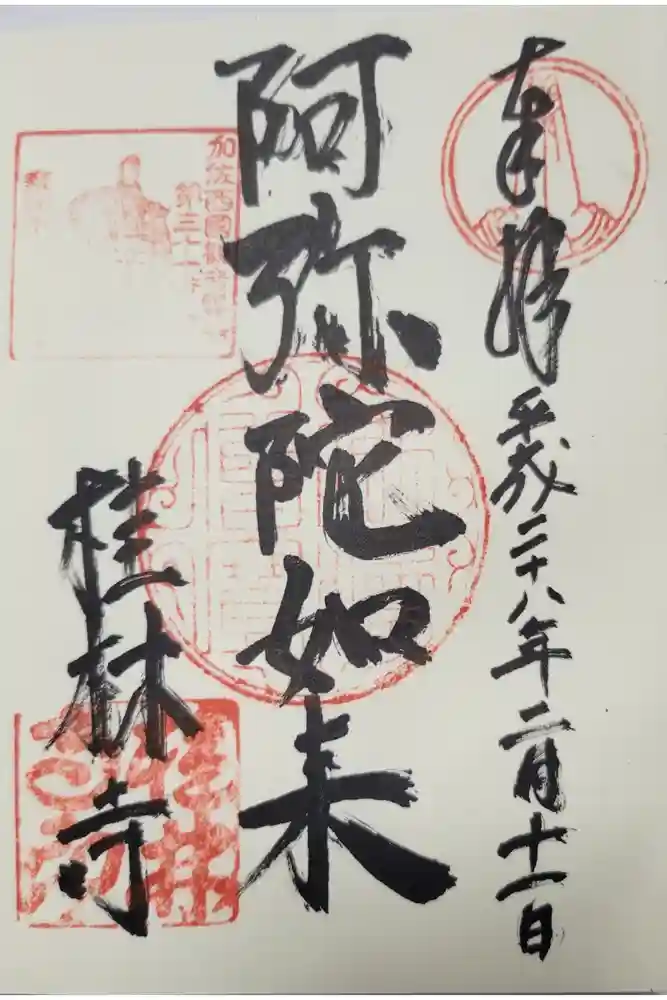 奉拝
平成二十八年二月十一日
阿弥陀如来
加佐西国観音霊場
第三十一番
桂林寺